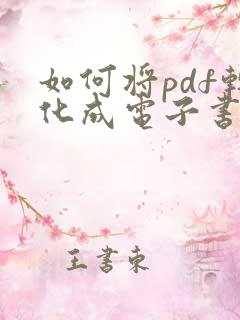 如何将pdf轉
化成電子書
王書東